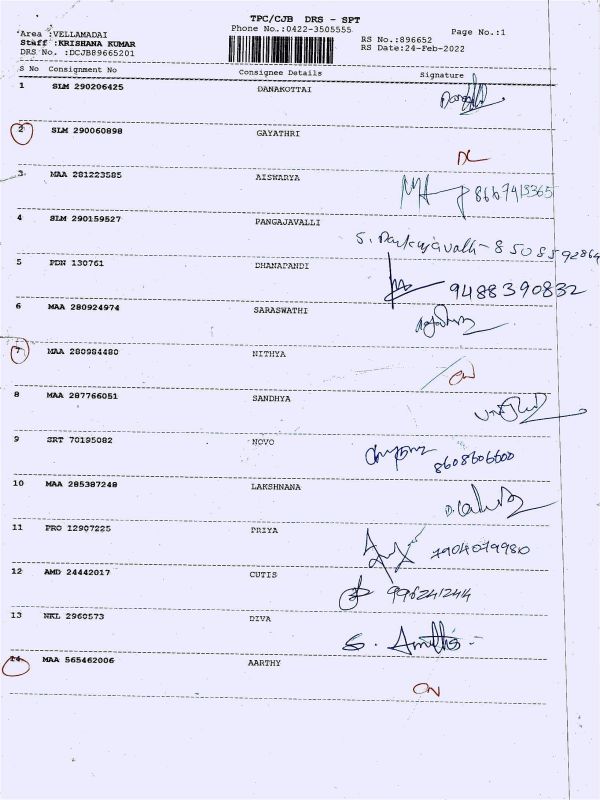 TPC/CJB DRS - SPT
Phone No.:0422-3505555 Page No.:1
Area :VELLAMADAI
Staff :KRISHANA KUMAR RS No.:896652
DRS No. :DCJB89665201 RS Date:24-Feb-2022
S No Consignment No Consignee Details Signature
1 SLM 290206425 DANAKOTTAI
2 SLM 290060898 GAYATHRI
3 MAA 281223585 AISWARYA
4 SLM 290159527 PANGAJAVALLI S. Pankajavalli - 8508592864
5 PDN 130761 DHANAPANDI 9488390832
6 MAA 280924974 SARASWATHI
7 MAA 280984480 NITHYA
8 MAA 287766051 SANDHYA
9 SRT 70195082 NOVO 8608606600
10 MAA 285387248 LAKSHNANA
11 PRO 12907225 PRIYA 7904079980
12 AMD 24442017 CUTIS 996241244
13 NKL 2960573 DIVA S.
14 MAA 565462006 AARTHY